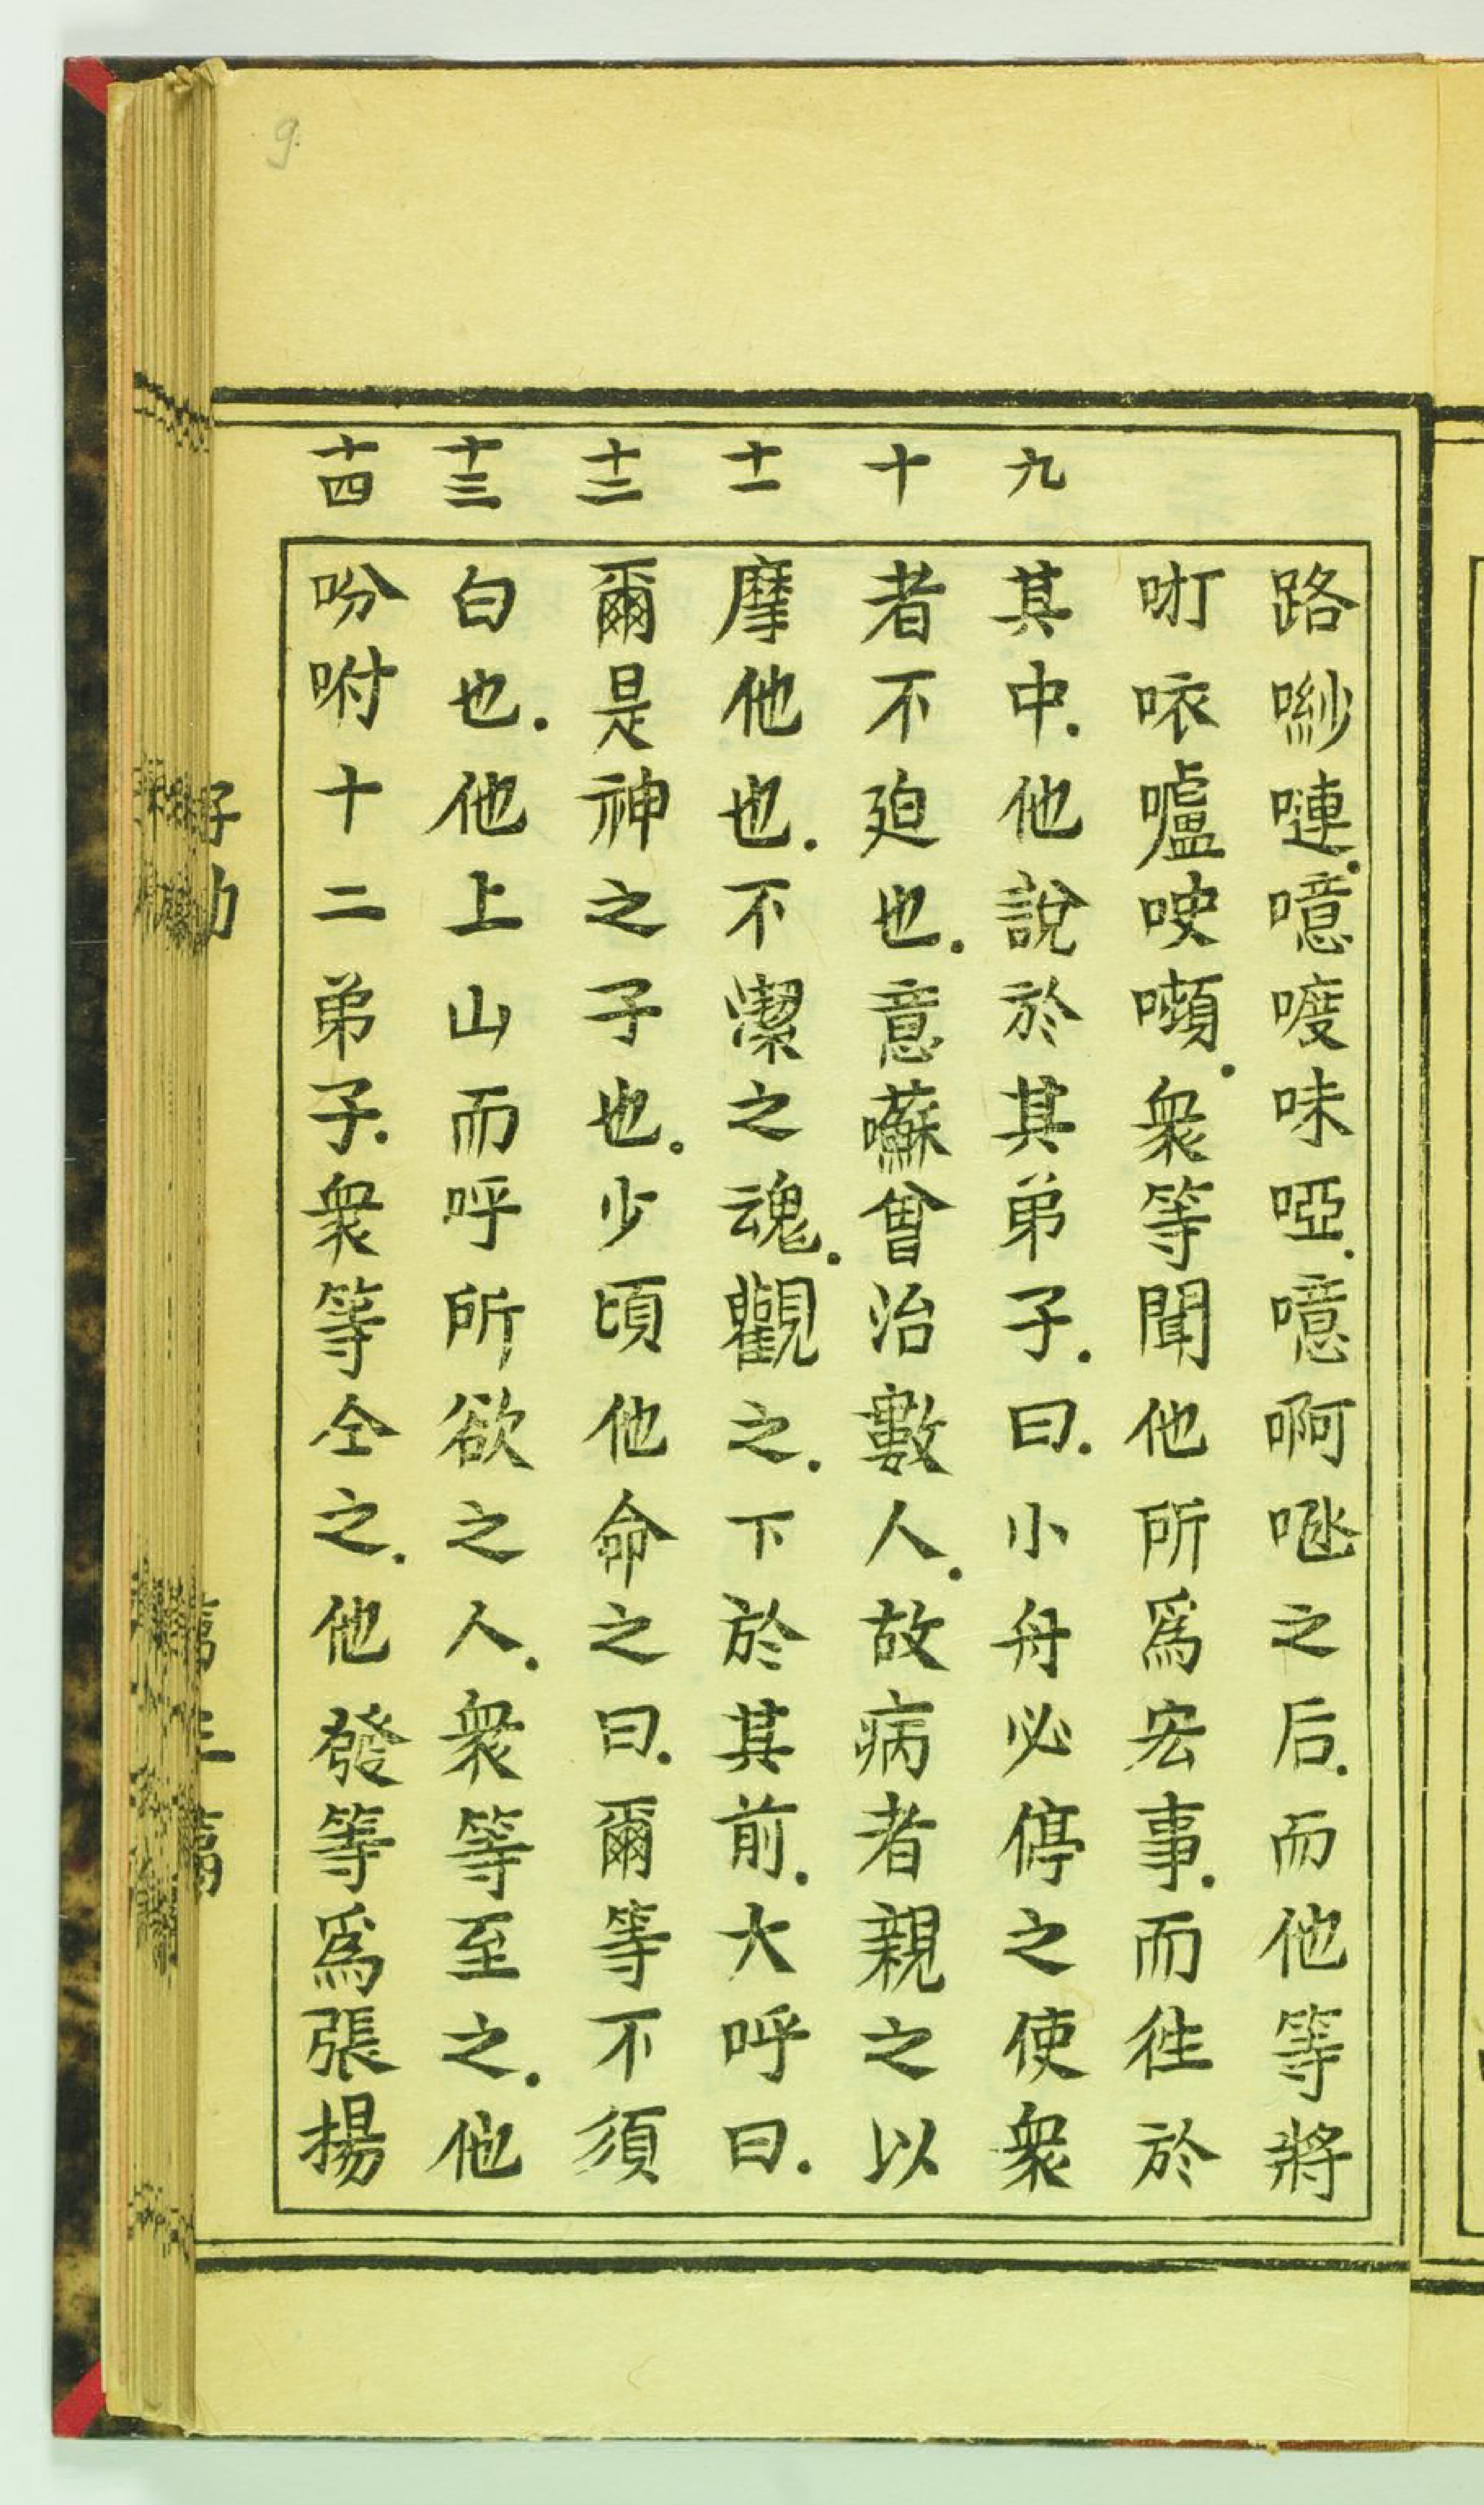 路嘞嗹.噫喥味啞.噫啊咝之后.而他等將
咑哝嚧㖠嚬.衆等聞他所爲宏事.而徃於
九
其中.他說於其弟子.曰.小舟必停之使衆
十
者不廹也.意囌曾治數人.故病者親之以
十一
摩他也.不潔之魂.觀之.下於其前.大呼曰.
十二
爾是神之子也.少頃他命之曰.爾等不須
十三
白也.他上山而呼所欲之人.衆等至之.他
十四
吩咐十二弟子.衆等仝之.他發等爲張揚